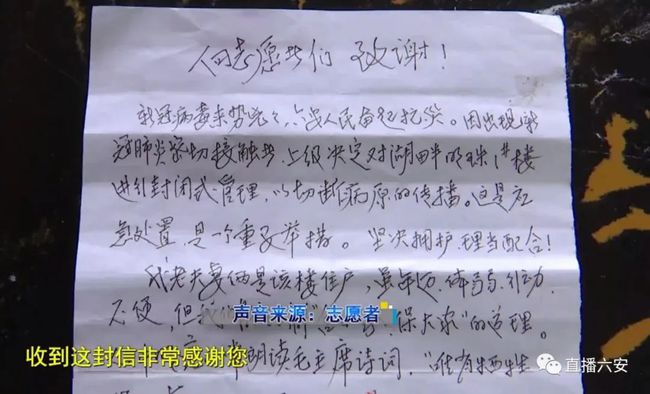 向志愿者们 致谢！
新冠病毒来势汹汹，六安人民奋起抗疫。因出现新
冠肺炎密切接触者，上级决定对湖畔明珠1#楼
进行封闭式管理，以切断病原的传播。这是应
急处置，是一个重要举措。坚决拥护，理当配合！
我老夫妻俩是该楼住户，虽年迈、体弱、行动
不便，但
保大家"的道理。
声音来源：志愿者
朗读毛主席诗词，"唯有牺牲
收到这封信非常感谢您
直播六安